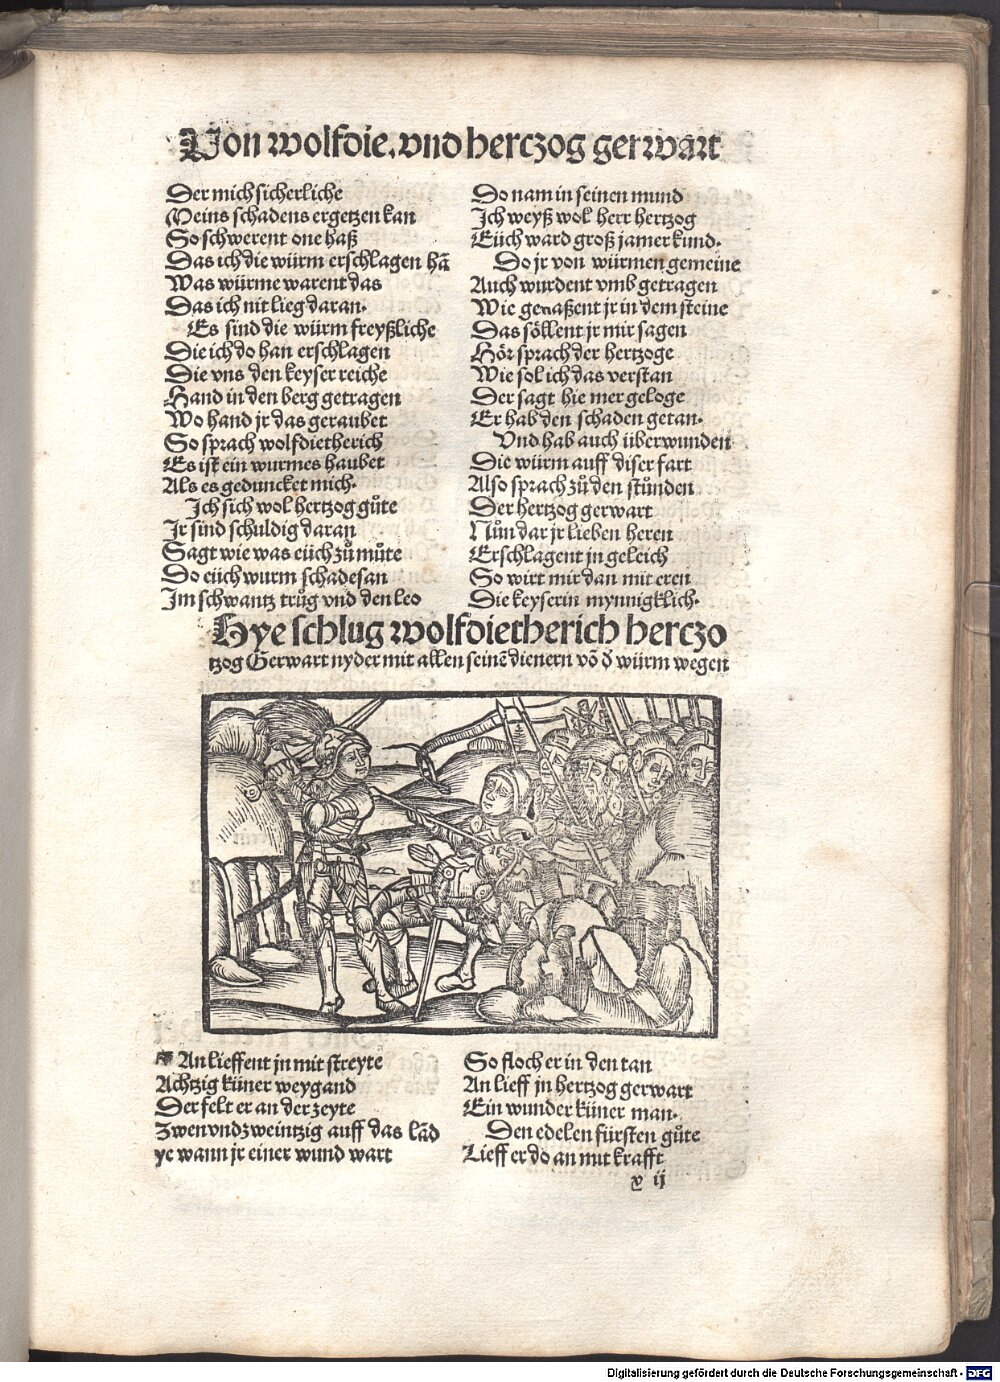 Von wolfdie. vnd herczog gerwart
Der mich sicherliche
Meins schadens ergetzen kan
So schwerent one haß
Das ich die würm erschlagen hā
Was würme warent das
Das ich nit lieg daran.
Es sind die würm freyßliche
Die ich do han erschlagen
Die vns den keyser reiche
Hand in den berg getragen
Wo hand jr das geraubet
So sprach wolfdietherich
Es ist ein wurmes haubet
Als es geduncket mich.
Ich sich wol hertzog gůte
Jr sind schuldig daran
Sagt wie was eüch zů můte
Do eüch wurm schadesan
Im schwantz trůg vnd den leo
Do nam in seinen mund
Ich weyß wol herr hertzog
Eüch ward groß jamer kund.
Do jr von würmen gemeine
Auch wurdent vmb getragen
Wie genaßent jr in dem steine
Das söllent jr mir sagen
Hör sprach der hertzoge
Wie sol ich das verstan
Der sagt hie mer geloge
Er hab den schaden getan.
Vnd hab auch überwunden
Die würm auff diser fart
Also sprach zů den stunden
Der hertzog gerwart
Nůn dar jr lieben heren
Erschlagent jn geleich
So wirt mir dan mit eren
Die keyserin mynnigklich.
Hye schlug wolfdietherich herczo
tzog Gerwart nyder mit allen seinē dienern vō d̄ würm wegen
An lieffent jn mit streyte
Achtzig küner weygand
Der felt er an der zeyte
Zwen vnd zweintzig auff das lād
ye wann jr einer wund wart
So floch er in den tan
An lieff jn hertzog gerwart
Ein wunder küner man.
Den edelen fürsten gůte
Lieff er do an mit krafft
x ij
Digitalisierung gefördert durch die Deutsche Forschungsgemeinschaft - DFG